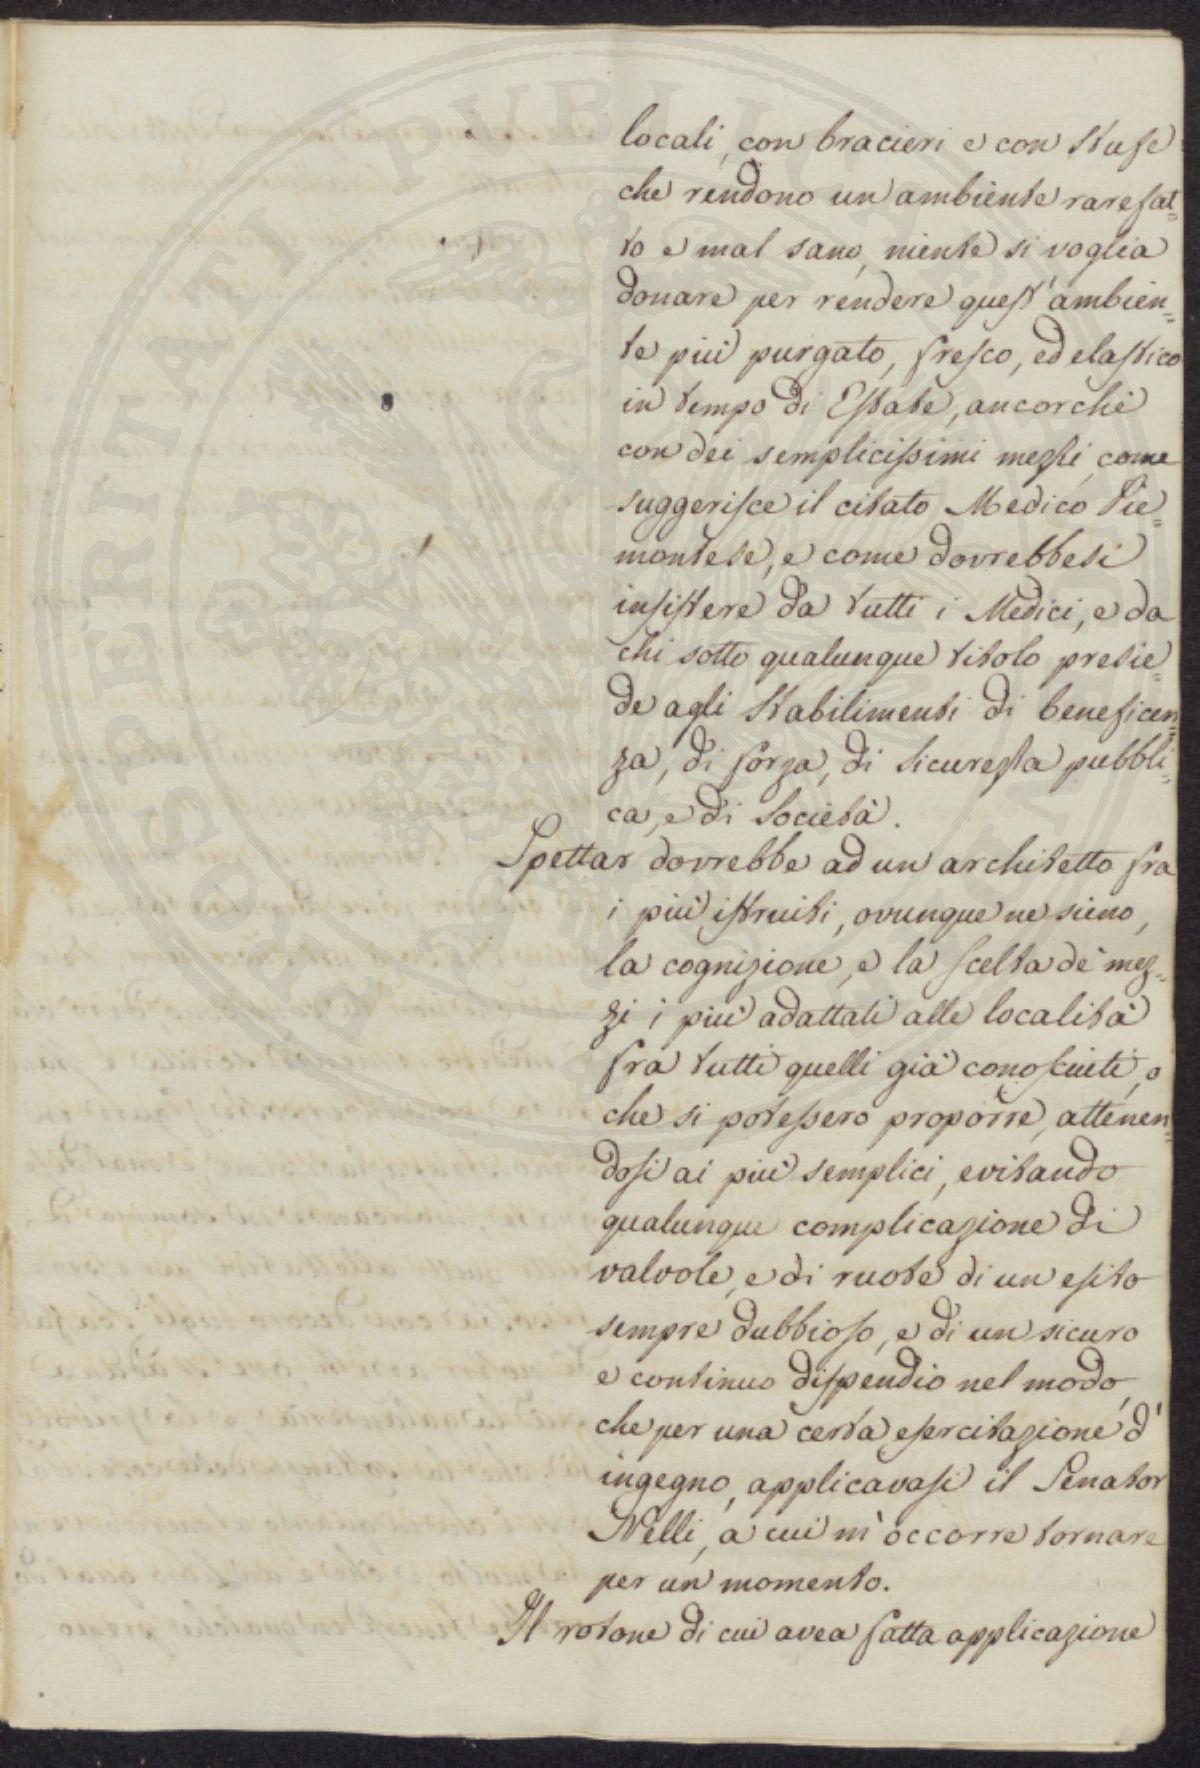 locali, con bracieri e con stufe
che rendono un ambiente rarefat=
to e mal sano, niente si voglia
donare per rendere quest'ambien=
te più purgato, fresco, ed elastico
in tempo di Estate, ancorchè
con dei semplicissimi mezzi, come
suggerisce il citato Medico Pie=
montese, e come dovrebbesi
insistere da tutti i Medici, e da
chi sotto qualunque titolo presie=
de agli Stabilimenti di beneficen=
za, di forza, di sicurezza pubbli=
ca, e di Società.
Spettar dovrebbe ad un architetto fra
i più istruiti, ovunque ne sieno,
la cognizione, e la scelta de' mez=
zi i più adattati alle località
fra tutti quelli già conosciuti, o
che si potessero proporre, attenen=
dosi ai più semplici, evitando
qualunque complicazione di
valvole, e di ruote di un esito
sempre dubbioso, e di un sicuro
e continuo dispendio nel modo,
che per una certa esercitazione d'
ingegno, applicavasi il Senator
Nelli, a cui m'occorre tornare
per un momento.
Il rotone di cui avea fatta applicazione
PROSPERITATI PUBLICAE